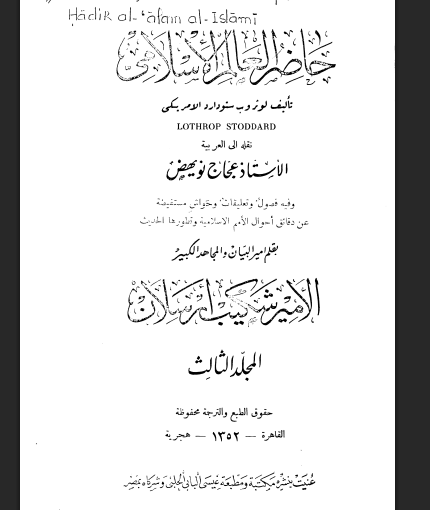 Ḥāḍir al-ʿālam al-Islāmī
حاضر العالم الإسلامي
تأليف لوثروب ستودارد الامريكى
LOTHROP STODDARD
نقله الى العربية
الأستاذ عجاج نويهض
وفيه فصول وتعليقات وحواش مستفيضة
عن دقائق أحوال الأمم الاسلامية وتطورها الحديث
بقلم امير البيان والمجاهد الكبير
الأمير شكيب ارسلان
المجلد الثالث
حقوق الطبع والترجمة محفوظة
القاهرة — ١٣٥٢ — هجرية
عنيت بنشره مكتبة ومطبعة عيسى البابى الحلبى وشركاه بمصر